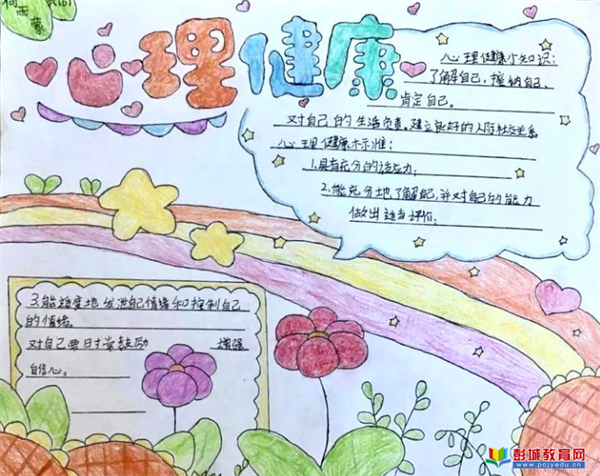 心理健康
心理健康小知识:
了解自己,接纳自己,
肯定自己。
对自己的生活负责。建立良好的人际社交关系
心理健康标准:
1.具有充分的适应力;
2.能充分地了解自己,并对自己的能力
做出适当评价;
3.能适度地发泄自己情绪和控制自己
的情绪。
对自己要时常鼓励 增强
自信心。
彭城教育网
www.pcjyedu.cn